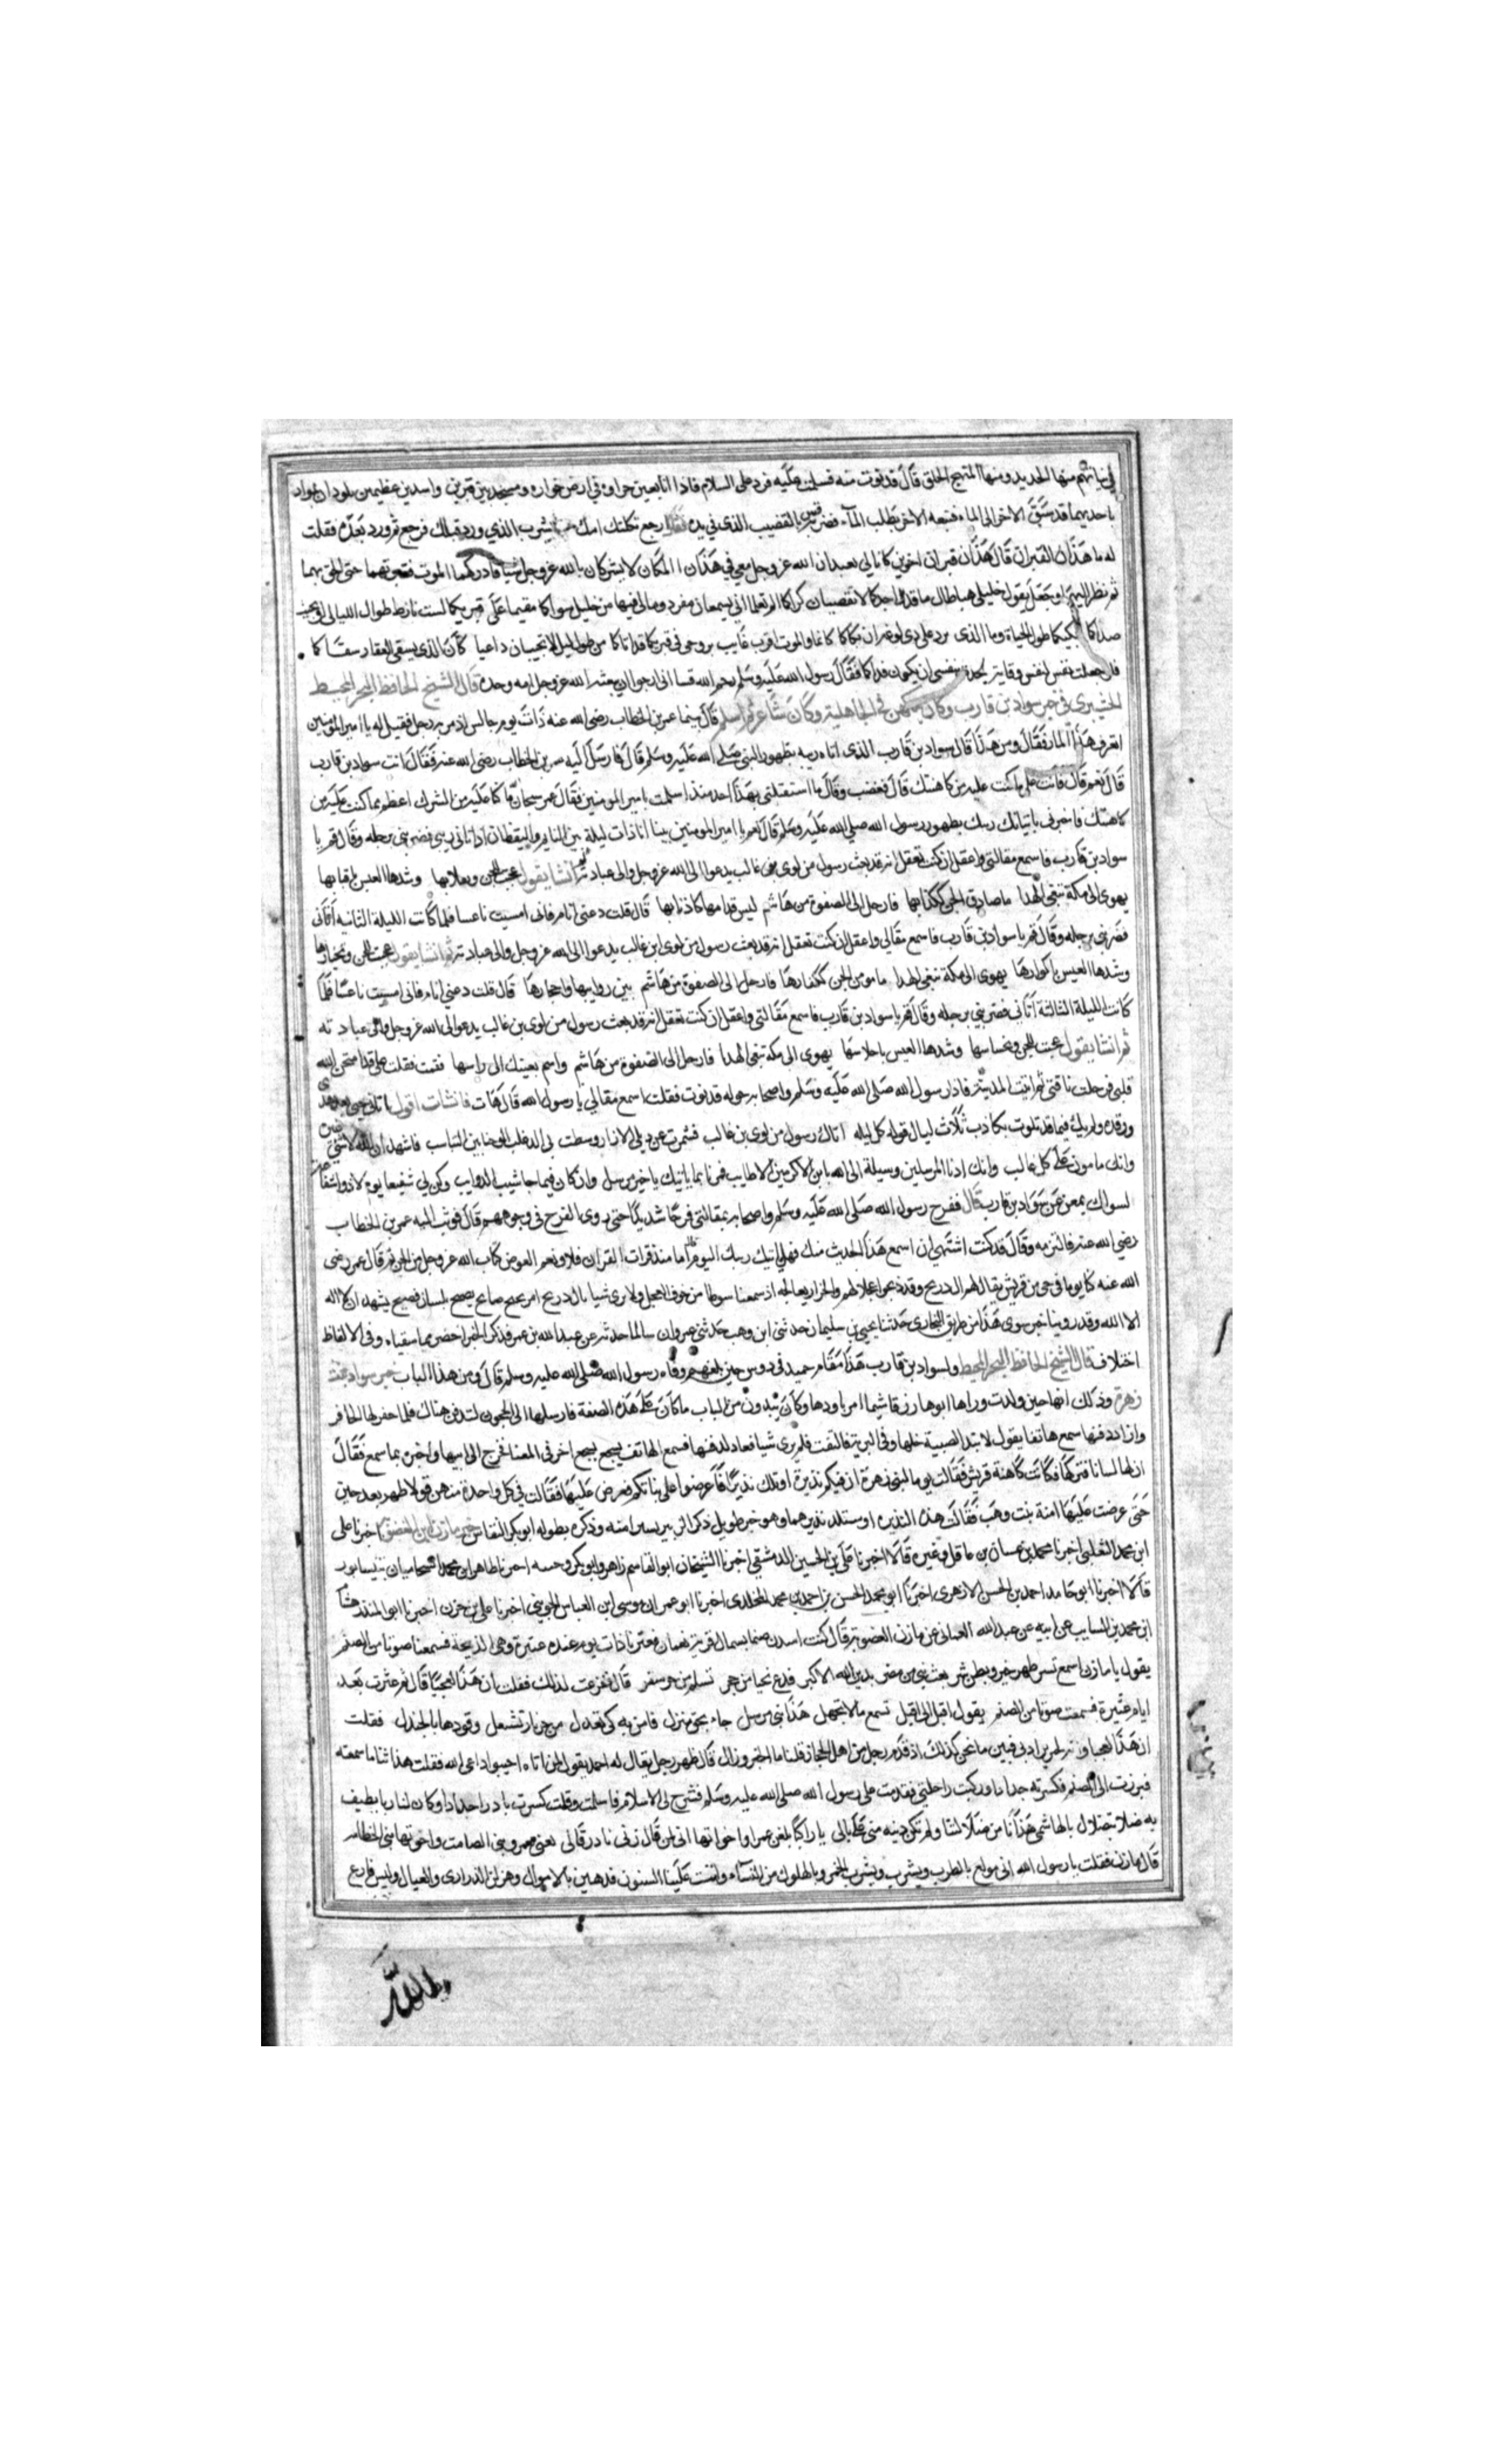 ثيابهم منها الجديد ومنها المنهج الخلق قال قدنوت منه فسلمت عليه فرد على السلام فاذا انا بعين خرارة في ارض خوارة ومسجد بين قبرين واسدين عظيمين يلوذان به واذا
باحدهما قد سبق الاخر الى الماء فتبعه الاخر يطلب المآء فضربه قس بالقضيب الذي في يده وقال ارجع ثكلتك امك حتى يشرب الذي ورد قبلك فرجع ثم ورد بعده فقلت
له ما هذان القبران قال هذان قبران اخوين كانا لي يعبدان الله عز وجل معي في هذا المكان لا يشركان بالله عز وجل شيئا فادركهما الموت فقبرتهما حتى الحق بهما
ثم نظر اليهما وجعل يقول خليلي هبا طال ما قد رقدتما اجدكما لا تقضيان كراكما الم تعلما اني بسمعان مفرد ومالي فيها من خليل سواكما مقيما على قبريكما لست نازحا طوال الليالي او يجيب
صداكما ابكيكما طول الحياة وما الذي يرد على ذي لوعة ان بكاكما كانكما والموت اقرب غايب بروحي في قبريكما قد اتاكما من طول ليل لا تجيبان داعيا كأن الذي يسقي العقار سقاكما
فلو جعلت نفس لنفس وقاية لجدت بنفسي ان تكون فداكما فقال رسول الله عليه وسلم رحم الله قسا اني ارجوا ان يبعثه الله عز وجل امة وحده قال الشيخ الحافظ البحر المحيط
خبر سواد بن قارب وكان يتكهن في الجاهلية وكان شاعرا ثم اسلم قال بينما عمر بن الخطاب رضي الله عنه ذات يوم جالس اذ مر به رجل فقيل له يا امير المؤمنين
اتعرف هذا المار فقال ومن هذا قال سواد بن قارب الذي اتاه ربيه بظهور النبي صلى الله عليه وسلم قال فارسل اليه عمر بن الخطاب رضي الله عنه فقال انت سواد بن قارب
قال نعم قال فانت على ما كنت عليه من كاهنتك قال فغضب وقال ما استقبلني بهذا احد منذ اسلمت يا امير المومنين فقال عمر سبحان الله ما كنا عليه من الشرك اعظم مما كنت عليه من
كاهنتك فاخبرني باتيانك ربيك بظهور رسول الله صلى الله عليه وسلم قال نعم يا امير المومنين بينا انا ذات ليلة بين النايم واليقظان اذ اتاني ربيي فضربني برجله وقال قم يا
سواد بن قارب فاسمع مقالتي واعقل ان كنت تعقل انه قد بعث رسول من لوي بن غالب يدعوا الى الله عز وجل والى عبادته ثم انشا يقول عجبت للجن وتطلابها وشدها العيس باقتابها
يهوى الى مكة تبغي الهدا ما صادق الجن ككذابها فارحل الى الصفوة من هاشم ليس قداماها كاذنابها قال قلت دعني انام فاني امسيت ناعسا فلما كانت الليلة الثانيه اتاني
فضربني برجله وقال قم يا سواد بن قارب فاسمع مقالي واعقل ان كنت تعقل انه قد بعث رسول من لوي ابن غالب يدعوا الى الله عز وجل والى عبادته ثم انشا يقول عجبت للجن وتخبارها
وشدها العيس باكوارها يهوى الى مكة تبغي الهدا ما مومن الجن ككفارها فارحل الى الصفوة من هاشم بين روابيها واحجارها قال قلت دعني انام فاني امسيت ناعسا فلما
كانت الليلة الثالثة اتاني فضربني برجله وقال قم يا سواد بن قارب فاسمع مقالتي واعقل ان كنت تعقل انه قد بعث رسول من لوي بن غالب يدعوالى الله عز وجل والى عبادته
ثم انشا يقول عجبت للجن وتحساسها وشدها العيس باحلاسها يهوى الى مكة تبغي الهدا فارحل الى الصفوة من هاشم واسم بعينيك الى راسها فقمت فقلت قد امتحن الله
قلبي فرحلت ناقتي ثم اتيت المدينة فاذا رسول الله صلى الله عليه وسلم واصحابه حوله فدنوت فقلت اسمع مقالي يا رسول الله قال هات فانشات اقول اتاني نجيي بعد هدء
ورقدة ولم يك فيما قد تلوت بكاذب ثلاث ليال قوله كل ليله اتاك رسول من لوي بن غالب فشمرت عن ذيلي الازار ووسطت بي الدعلب الوجنا بين السباسب فاشهد ان الله لا شي غيره
وانك مامون على كل غالب وانك ادنا المرسلين وسيلة الى الله يا ابن الاكرمين الاطايب فمرنا بما ياتيك يا خير مرسل وان كان فيما جا شيب الذوايب وكن لي شفيعا يوم لا ذو شفاعة
سواك بمغن عن سواد بن قارب قال ففرح رسول الله صلى الله عليه وسلم واصحابه بمقالتي فرحا شديدا حتى روي الفرح في وجوههم قال فوثب اليه عمر بن الخطاب
رضي الله عنه فالتزمه وقال قد كنت اشتهي ان اسمع هذا الحديث منك فهل ياتيك ربيك اليوم قال اما منذ قرات القران فلا ونعم العوض كتاب الله عز وجل من الجن ثم قال عمر رضي
الله عنه كنا يوما في حي من قريش يقال لهم ال ذريح وقد ذبحوا عجلا لهم والجزار يعالجه اذ سمعنا صوتا من جوف العجل ولا نرى شيا يال ذريح امر نجيح صايح يصيح بلسان فصيح يشهد ان لا اله
الا الله وقد روينا خبر سوى هذا من طريق البخاري حدثنا يحيى بن سليمان حدثني ابن وهب حدثني عمر ان سالما حدثه عن عبد الله بن عمر فذكر الخبر اخصر مما سقناه وفي الالفاظ
اختلاف قال الشيخ الحافظ البحر المحيط ولسواد بن قارب هذا مقام حميد في دوس حين بلغهم وفاه رسول الله صلى الله عليه وسلم قال ومن هذا الباب خبر سوادة بنت
زهرة وذلك انها حين ولدت وراها ابوها زرقا شيما امر باودها وكان يئدون من البنات ما كان على هذه الصفة فارسلها الى الحجون لتدفن هناك فلما حفر لها الحافر
واراد دفنها سمع هاتفا يقول لا تئد الصبية خلها وفي البرية فالتفت فلم يرى شيا فعاد لدفنها فسمع الهاتف يسجع بسجع اخر في المعنا فخرج الى ابيها واخبره بما سمع فقال
ان لها لسانا فتركها فكانت كاهنة قريش فقالت يوما لبني زهرة ان فيكم نذيرة او تلد نذيرا فاعرضوا على بناتكم فعرض عليها فقالت في كل واحدة منهن قولا ظهر بعد حين
حتى عرضت عليها امنة بنت وهب فقالت هذه النذيره او ستلد نذيرا وهو خبر طويل ذكر الزبير يسيرا منه وذكره بطوله ابو بكر النقاش خبر مازن بن الغضوبة اخبرنا علي
ابن محمد التغلبي اخبرنا محمد بن غسان بن عاقل وغيره قالا اخبرنا علي بن الحسين الدمشقي اخبرنا الشيخان ابو القاسم زاهر وابو بكر وجيه اخبرنا طاهر ابن محمد الشحاميان بنيسابور
قالا اخبرنا ابو حامد احمد بن الحسن الازهري اخبرنا ابو محمد الحسن بن احمد بن محمد المخلدي اخبرنا ابو عمران موسى ابن العباس الجويني اخبرنا علي بن حرب اخبرنا ابو المنذر هشام
ابن محمد بن السايب عن ابيه عن عبد الله العماني عن مازن الغضوبة قال كنت اسدن صنما بسمال قرية بعمان فعترنا ذات يوم عنده عتيرة وهي الذبيحة فسمعنا صوتا من الصنم
يقول يا مازن اسمع تسر ظهر خير وبطن شر بعث نبي من مضر بدين الله الاكبر فدع نحيتا من حجر تسلم من حر سقر قال ففزعت لذلك فقلت ان هذا لعجبا قال ثم عترت بعد
ايام عتيرة فسمعت صوتا من الصنم يقول اقبل الي اقبل تسمع مالا تجهل هذا نبي مرسل جاء بحق منزل فامن به كي تعدل من حر نار تشعل وقودها بالجندل فقلت
ان هذا لعجبا وانه لخير يراد بي فبين ما نحن كذلك اذ قدم رجل من اهل الحجاز قلنا ما الخبر وراك قال ظهر رجل يقال له احمد يقول لمن اتاه اجيبوا داعي الله فقلت هذا نبا ما سمعته
فبرزت الى الصنم فكسرته جدادا وركبت راحلتي فقدمت على رسول الله صلى الله عليه وسلم فشرح لي الاسلام فاسلمت وقلت كسرت بادر اجدادا وكان لنا ربا نطيف
به ضلا بتضلال بالهاشمي هدانا من ضلالتنا ولم تكن دينه مني على بالي يا راكبا بلغن عمرا واخواتها اني لمن قال ربي نادر قالي يعني عمرو بني الصامت واخوتها بني الخطامه
قال مازن فقلت يا رسول الله اني مولع بالطرب ويشرب وبشرب الخمر وبالهلوك من النسآء والحت علينا السنون فذهبن بالاموال وهزلن الذراري والعيال وليس لي
والله